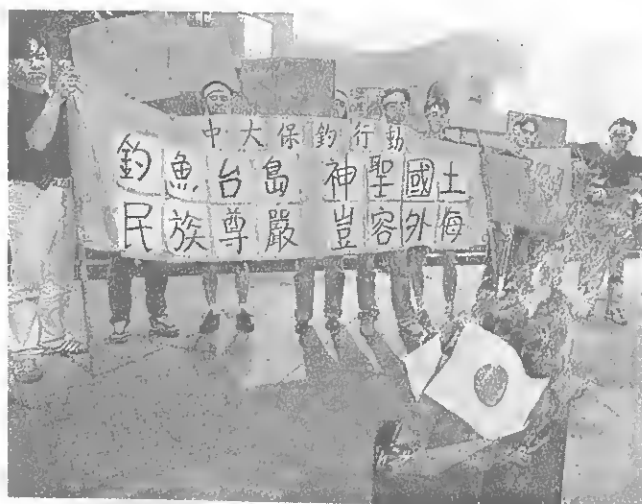 中大保釣行動
釣魚台島 神聖國土
民族尊嚴 豈容外侮